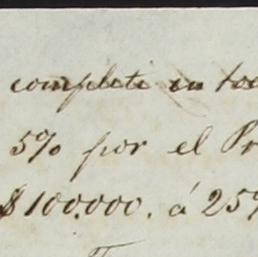 complete en to
5% por el Pr
$100.000. á 25%